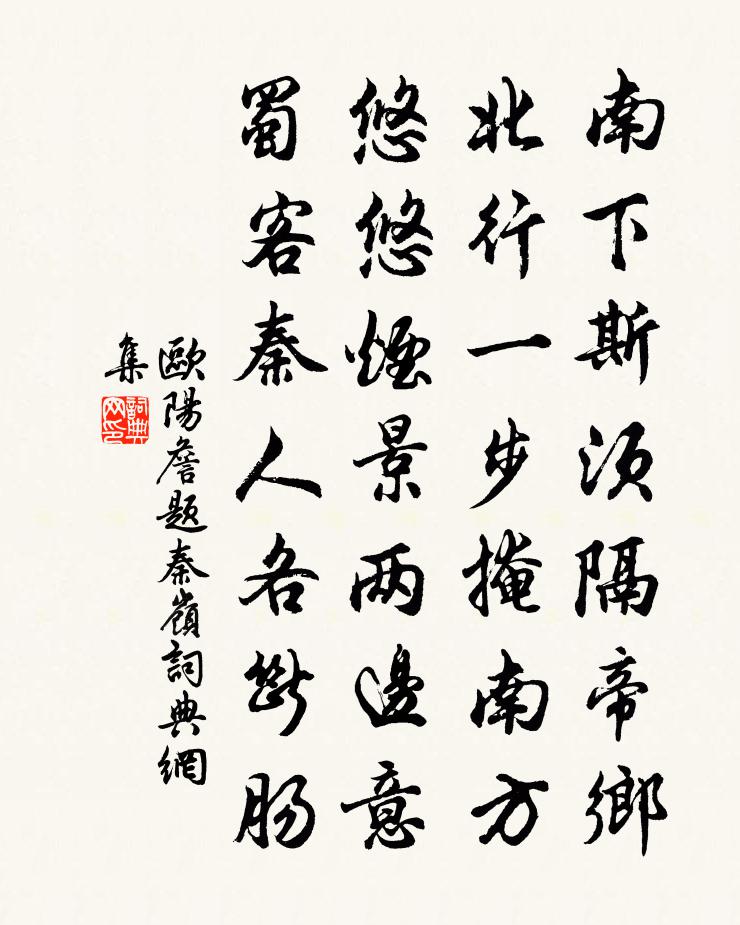 南下斯須隔帝鄉
北行一步掩南方
悠悠煙景兩邊意
蜀客秦人各斷腸
歐陽詹題秦嶺詞典網
集
詞典网印